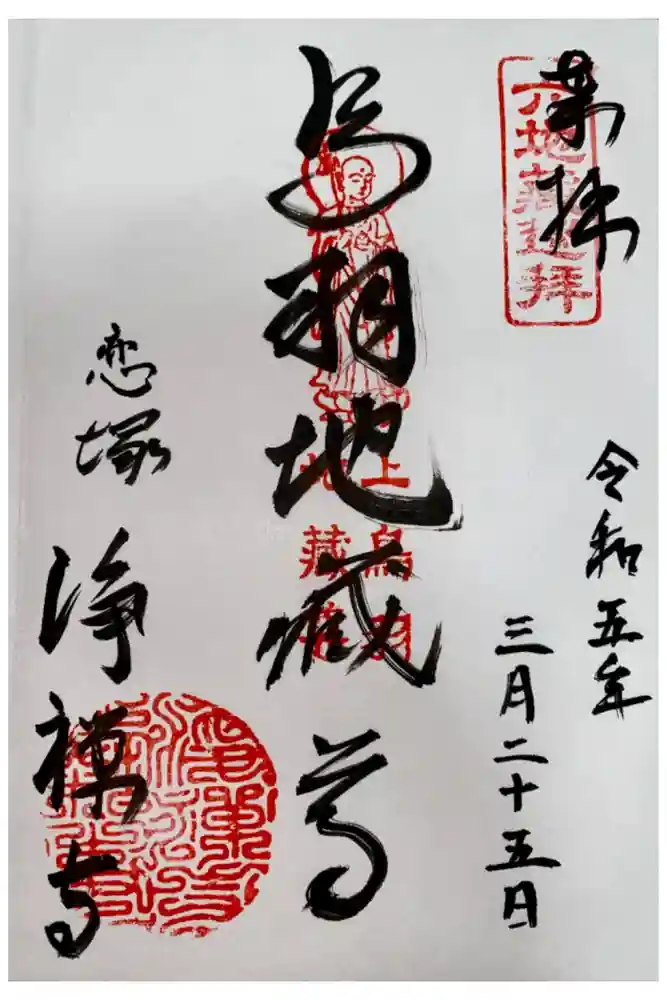 奉拝
六地蔵巡拝
令和五年
三月二十五日
鳥羽地蔵尊
上鳥羽
地蔵尊
恋塚
浄禅寺